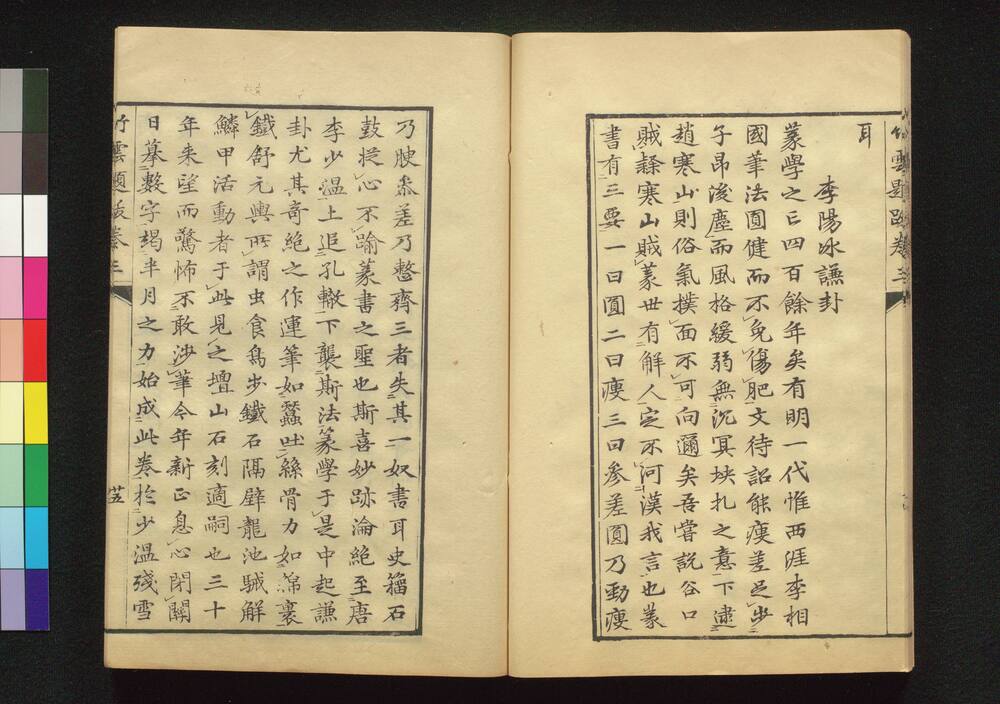 耳
李陽冰謙卦
篆學之亡四百餘年矣有明一代惟西涯李相
國筆法圓健而不免傷肥文待詔能瘦差足步
子昂後塵而風格緩弱無沉冥坱圠之意下逮
趙寒山則俗氣撲面不可向邇矣吾嘗説谷口
賊隸寒山賊篆世有解人定不河漢我言也篆
書有三要一曰圓二曰瘦三曰參差圓乃勁瘦
乃腴參差乃整齊三者失其一奴書耳史籀石
鼓從心不踰篆書之聖也斯喜妙跡淪絶至唐
李少温上追孔轍下襲斯法篆學于是中起謙
卦尤其奇絶之作運筆如蠶吐絲骨力如綿裹
鐵舒元輿所謂虫食鳥步鐵石隔壁龍池駴解
鱗甲活動者于此見之壇山石刻適嗣也三十
年来望而驚怖不敢涉筆今年新正息心閉關
日摹數字竭半月之力始成此卷於少温殘雪
竹雲題跋卷三
竹雲題跋卷三
廿五